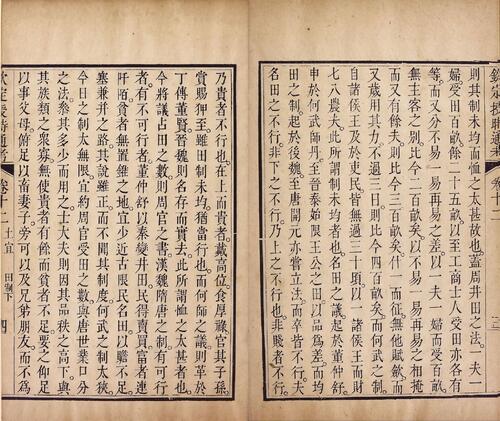 欽定授時通考 卷十二 三
則其制未均而恤之太甚故也。蓋周井田之法。一夫一
婦受田百畝。餘二十五畝。以至工商士人受田亦各有
等。而又分不易一易再易之差。以一夫一婦而受百畝。
無主客之别。比今二百畝矣。以不易一易再易之相掩。
而又有餘夫。則比今三百畝矣。什一而征。無他賦斂。而
又歲用其力。不過三日。則比今四百畝矣。而何武之制。
自諸侯王及於吏民皆無過三十頃。以一諸侯王而財
七八農夫。此所謂制未均也。名田之議。起於董仲舒。
申於何武師丹。至晉泰始限王公之田。以品為差。而均
田之制。起於後魏。至唐開元亦嘗立法。而卒皆不行。夫
名田之不行。非下之不行。乃上之不行。非賤者之不行。
乃貴者不行也。在上而貴者。戴高位。食厚祿。官其子孫。
賞賜狎至。雖田制未均。猶當行也。而何師之議。則革於
丁傅董賢。晉魏則名存而實去。此所謂恤之太甚者也。
今將議占田之數。則周官之書。漢魏隋唐之制。有可行
者。有不可行者。董仲舒以秦變井田。民得賣買。富者連
阡陌。貧者無置錐之地。宜少近古。限民名田。以贍不足。
塞兼并之路。其說雖正。而不聞其制度。何武之制太狹。
今日之制太無限。宜約周官受田之數。與唐世業口分
之法。參其多少而用之。士大夫則因其品秩之高下。與
其族類之衆寡。無使貴者有餘。而貧者不足。要之仰足
以事父母。俯足以畜妻子。旁可以及兄弟朋友。而不為
欽定授時通考 卷十二 土宜 田制下 四